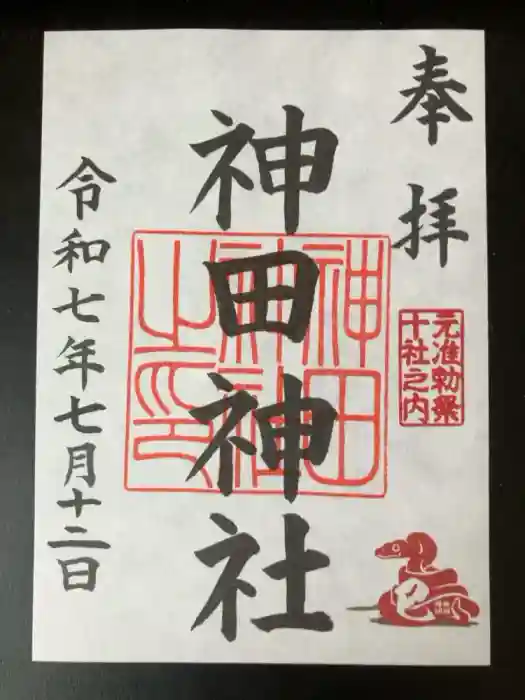 奉拝
元准勅祭
十社之内
神田神社
神田
神社
之印
令和七年七月十二日
巳